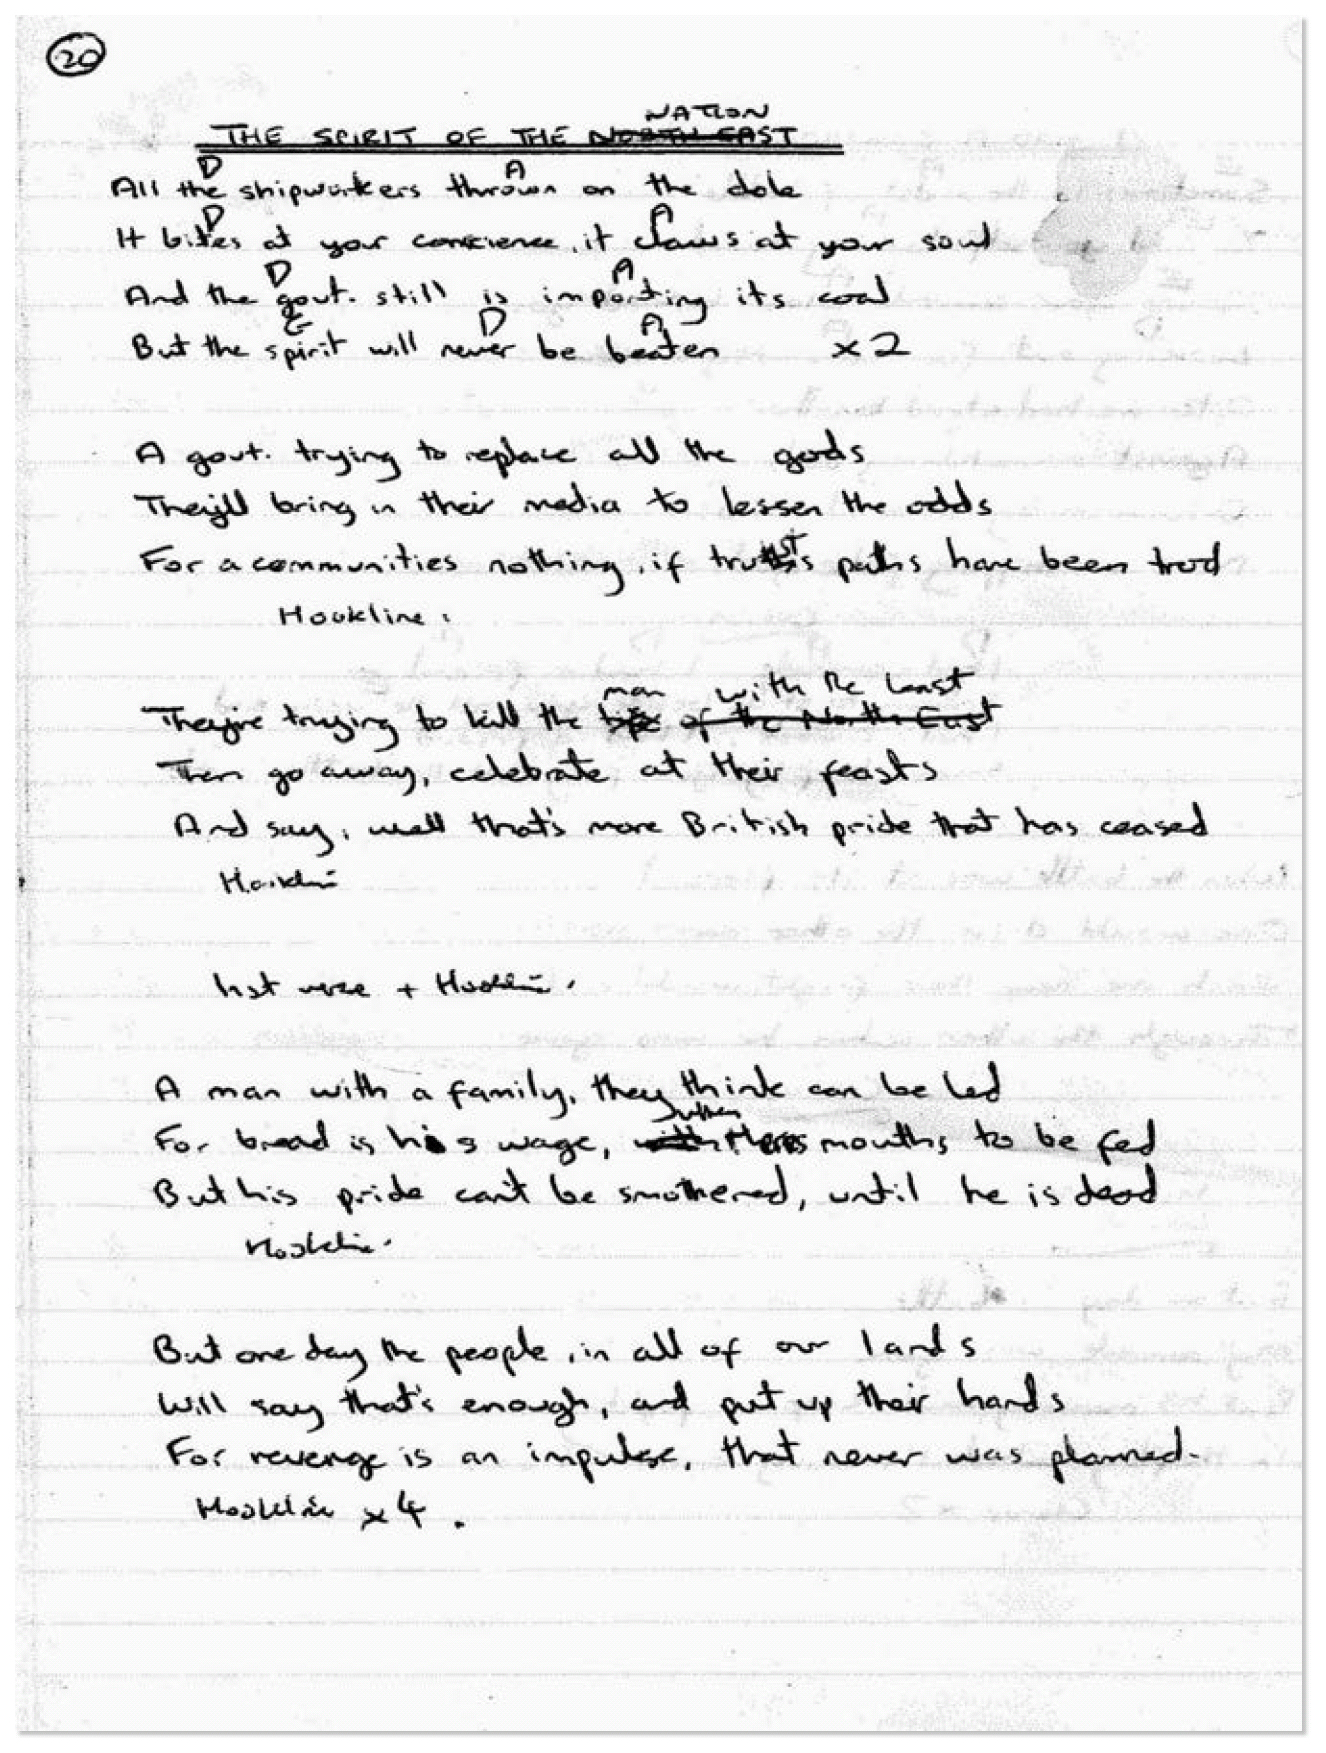 20
NATION
THE SPIRIT OF THE NORTH EAST
D A
All the shipworkers thrown on the dole
D A
It bites at your conscience, it claws at your soul
D A
And the govt. still is importing its coal
E D A
But the spirit will never be beaten x2
A govt. trying to replace all the gods
They'll bring in their media to lessen the odds
For a communities nothing, if trust's paths have been trod
Hookline.
man with the least
They're trying to kill the of the North East
Then go away, celebrate at their feasts
And say, well that's more British pride that has ceased
Hookline
1st verse + Hookline.
A man with a family, they think can be led
For bread is his wage, mouths to be fed
But his pride can't be smothered, until he is dead
Hookline.
But one day the people, in all of our lands
Will say that's enough, and put up their hands
For revenge is an impulse, that never was planned.
Hookline x4.